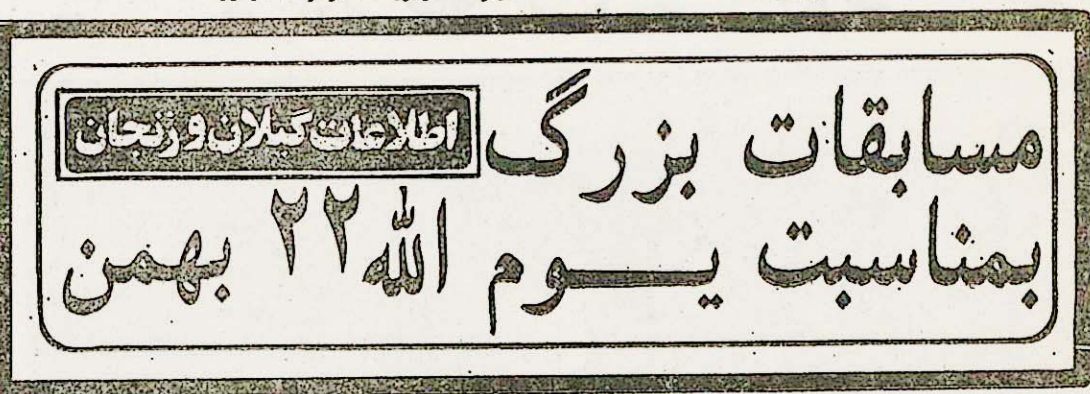 مسابقات بزرگ
اطلاعات گیلان و زنجان
بمناسبت یــوم الله ۲۲ بهمن